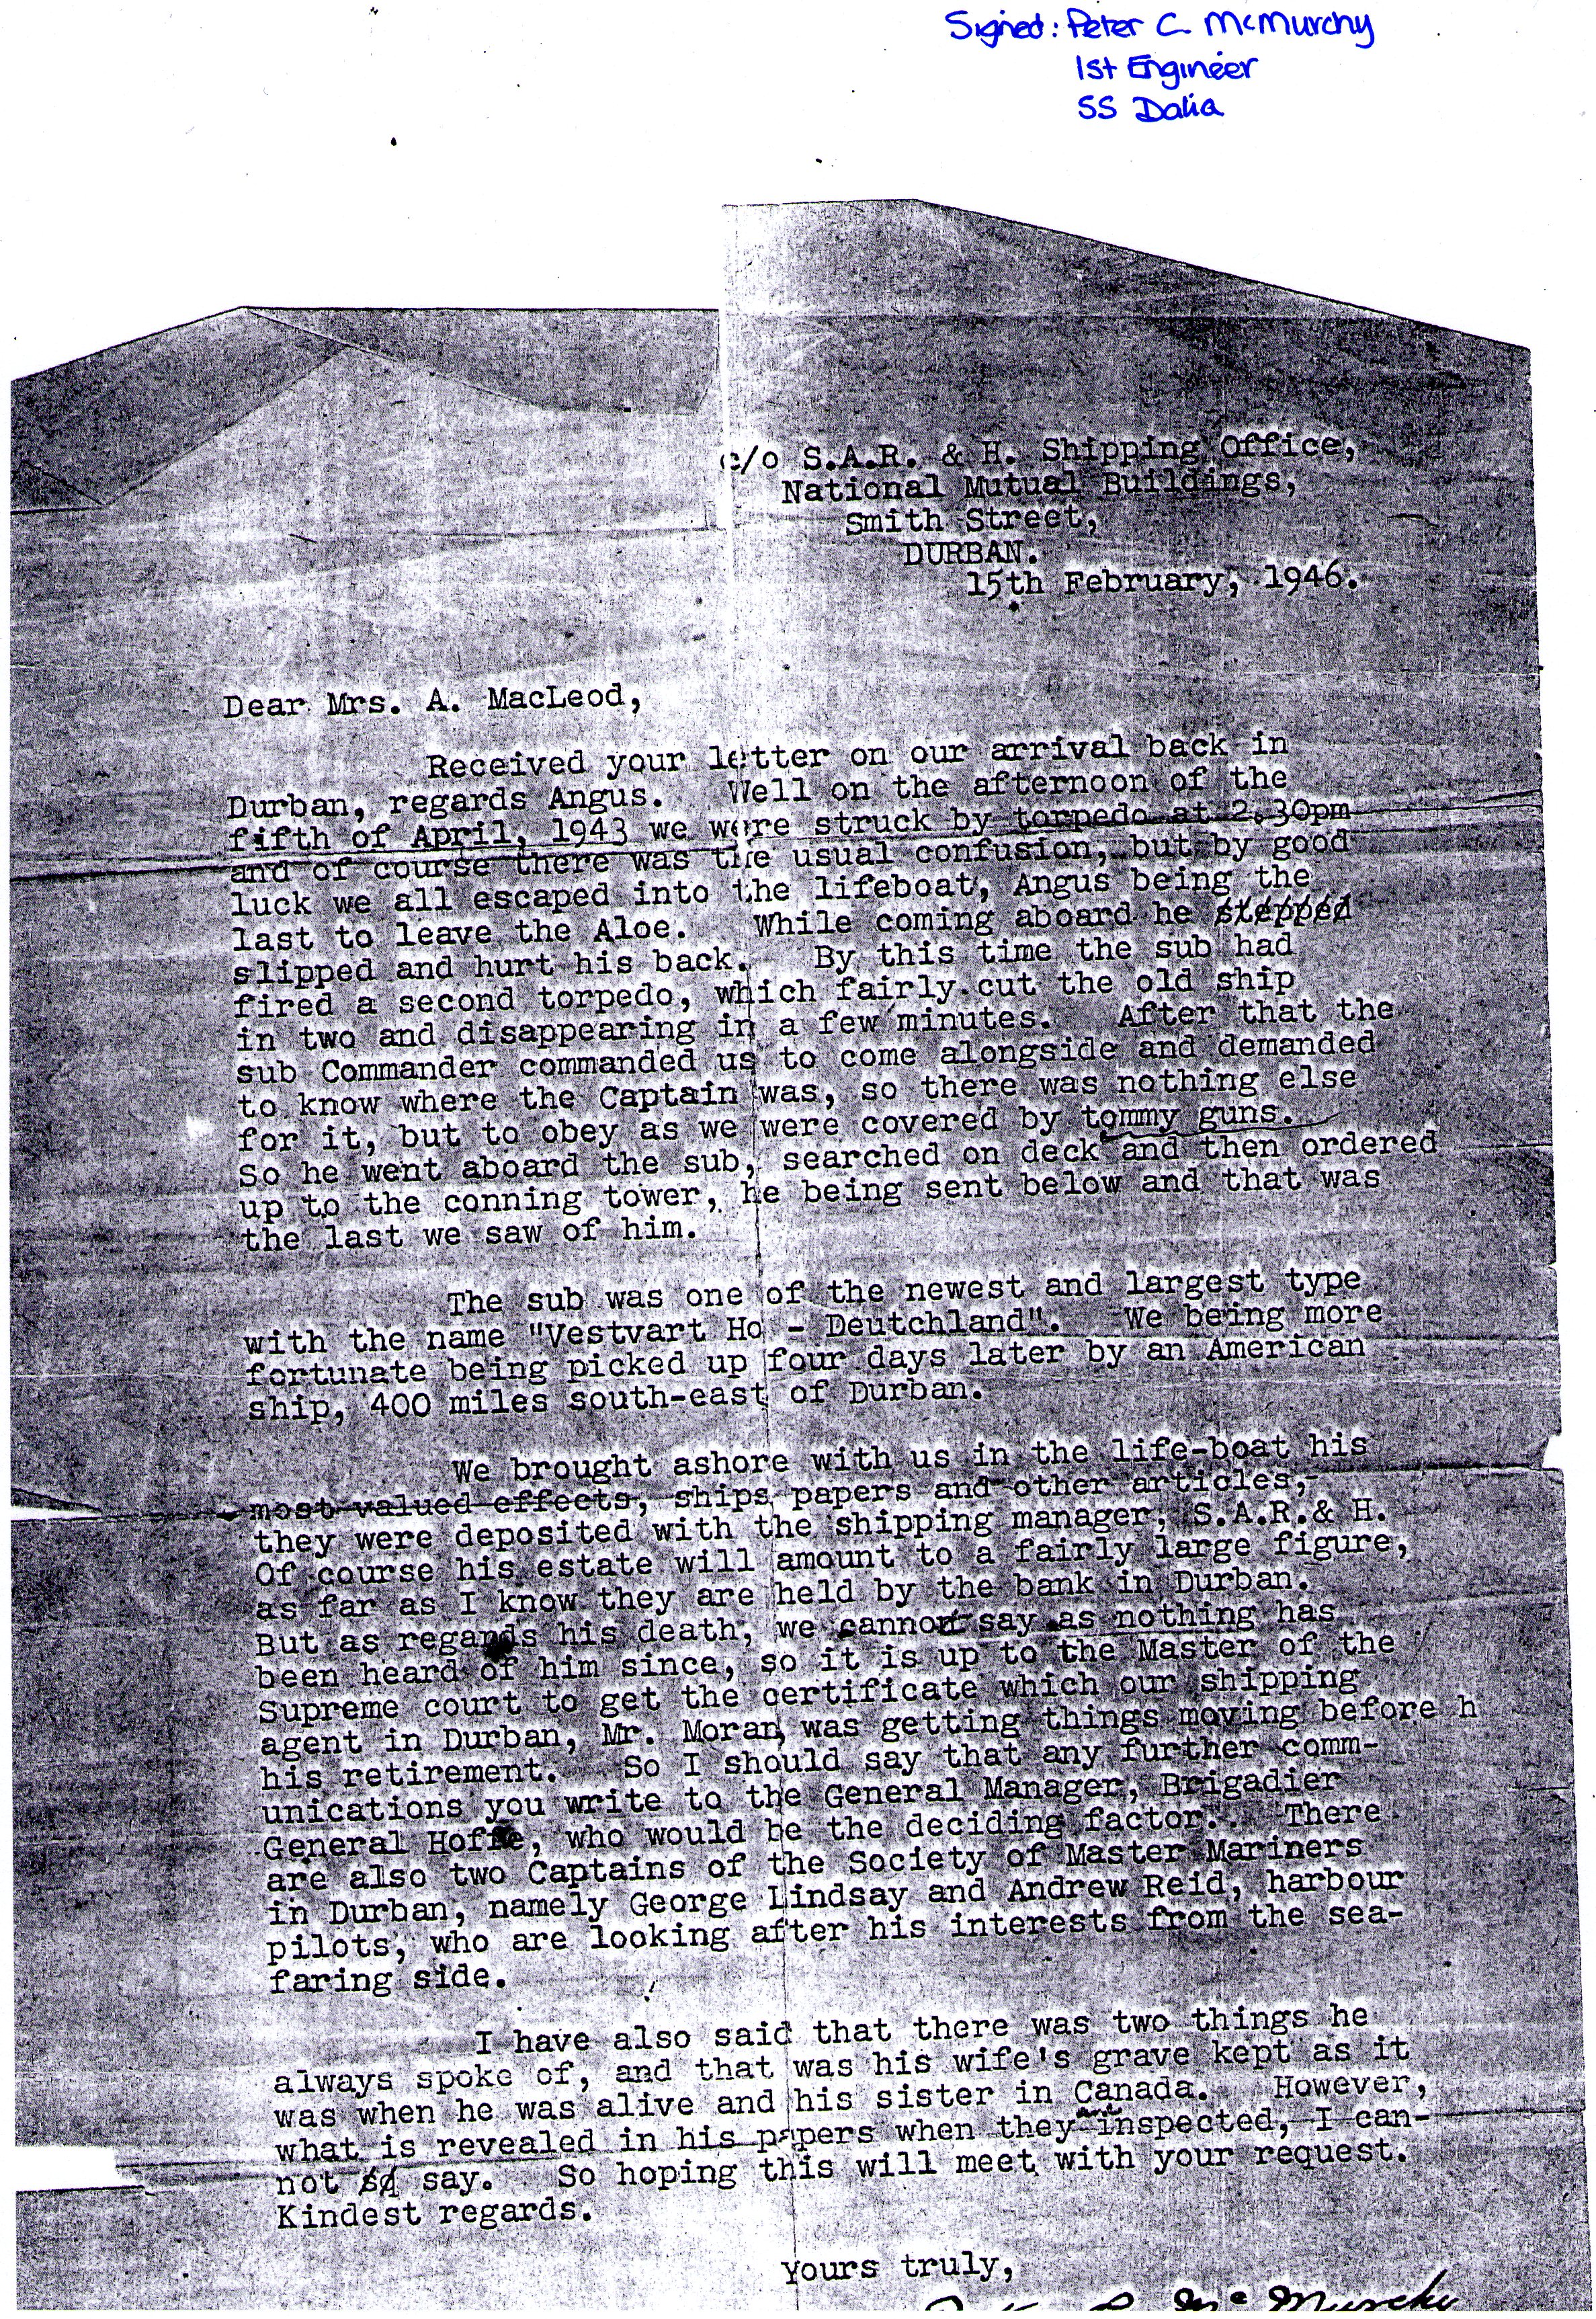 Signed: Peter C. McMurchy
1st Engineer
SS Dalia
c/o S.A.R. & H. Shipping Office,
National Mutual Buildings,
Smith Street,
DURBAN.
15th February, 1946.
Dear Mrs. A. MacLeod,
Received your letter on our arrival back in
Durban, regards Angus. Well on the afternoon of the
fifth of April, 1943 we were struck by torpedo at 2.30pm
and of course there was the usual confusion, but by good
luck we all escaped into the lifeboat, Angus being the
last to leave the Aloe. While coming aboard he stepped
slipped and hurt his back. By this time the sub had
fired a second torpedo, which fairly cut the old ship
in two and disappearing in a few minutes. After that the
sub Commander commanded us to come alongside and demanded
to know where the Captain was, so there was nothing else
for it, but to obey as we were covered by tommy guns.
So he went aboard the sub, searched on deck and then ordered
up to the conning tower, he being sent below and that was
the last we saw of him.
The sub was one of the newest and largest type
with the name "Vestvart Ho - Deutchland". We being more
fortunate being picked up four days later by an American
ship, 400 miles south-east of Durban.
We brought ashore with us in the life-boat his
most valued effects, ships papers and other articles,
they were deposited with the shipping manager, S.A.R.& H.
Of course his estate will amount to a fairly large figure,
as far as I know they are held by the bank in Durban.
But as regards his death, we cannot say as nothing has
been heard of him since, so it is up to the Master of the
Supreme court to get the certificate which our shipping
agent in Durban, Mr. Moran, was getting things moving before h
his retirement. So I should say that any further comm-
unications you write to the General Manager, Brigadier
General Hoffe, who would be the deciding factor. There
are also two Captains of the Society of Master Mariners
in Durban, namely George Lindsay and Andrew Reid, harbour
pilots, who are looking after his interests from the sea-
faring side.
I have also said that there was two things he
always spoke of, and that was his wife's grave kept as it
was when he was alive and his sister in Canada. However,
what is revealed in his papers when they are inspected, I can-
not so say. So hoping this will meet with your request.
Kindest regards.
Yours truly,
McMurchy